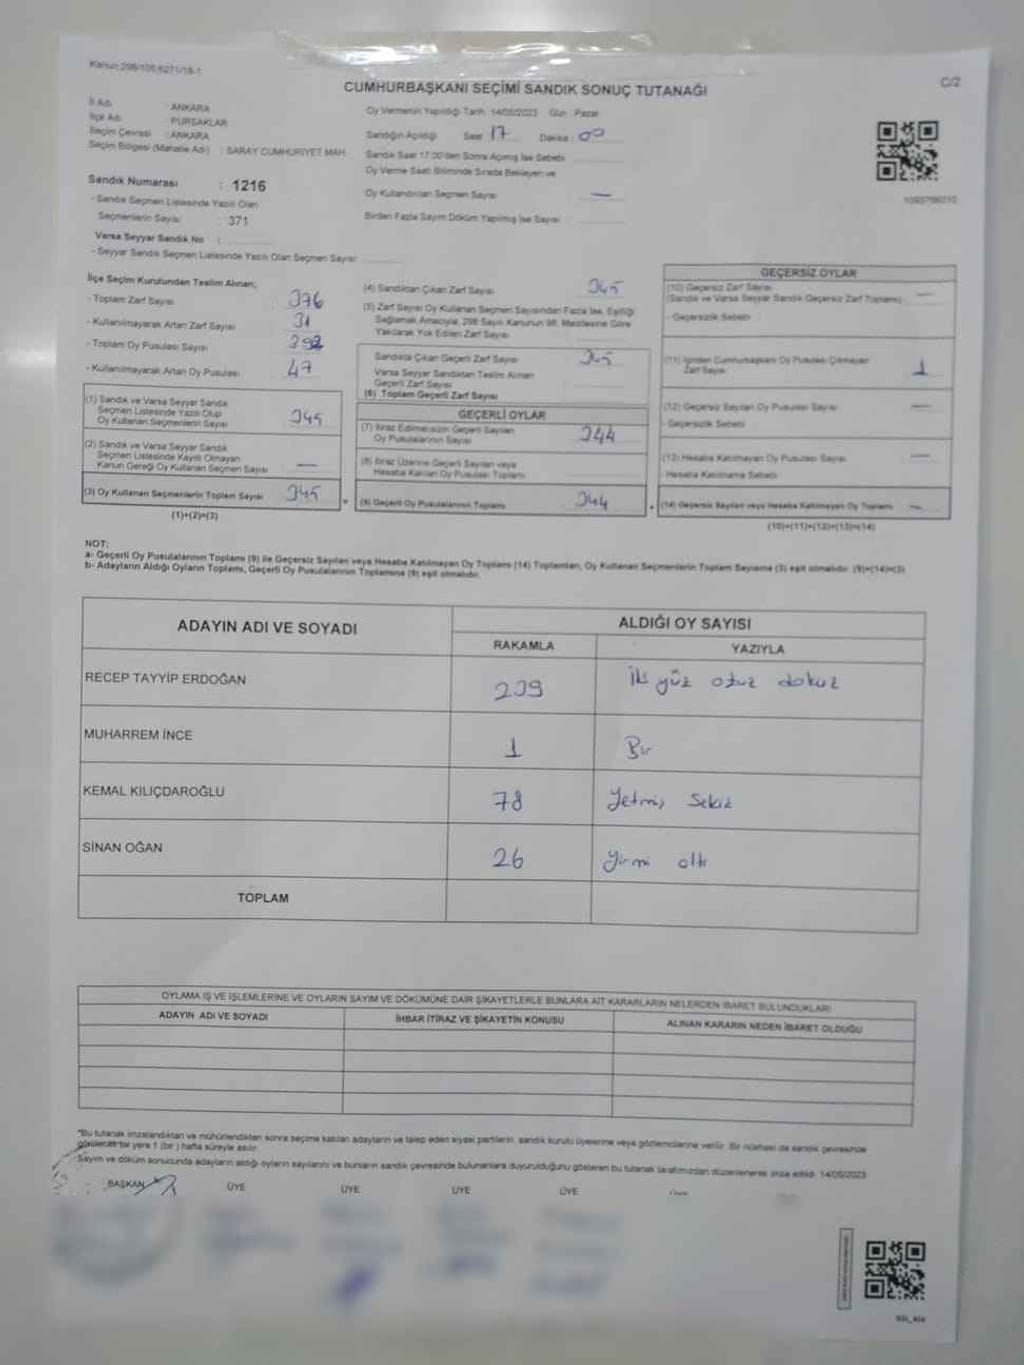 Kanun:298/105;6271/18-1
C/2
CUMHURBAŞKANI SEÇİMİ SANDIK SONUÇ TUTANAĞI
İl Adı ANKARA
İlçe Adı PURSAKLAR
Seçim Çevresi : ANKARA
Seçim Bölgesi (Mahalle Adı) : SARAY CUMHURİYET MAH.
Sandık Numarası : 1216
- Sandık Seçmen Listesinde Yazılı Olan
Seçmenlerin Sayısı : 371
Varsa Seyyar Sandık No :
- Seyyar Sandık Seçmen Listesinde Yazılı Olan Seçmen Sayısı
Oy Vermenin Yapıldığı Tarih: 14/05/2023 Gün: Pazar
Sandığın Açıldığı Saat 17 Dakika: 00
Sandık Saat 17:00'den Sonra Açılmış İse Sebebi
Oy Verme Saati Bitiminde Sırada Bekleyen ve
Oy Kullandırılan Seçmen Sayısı —
Birden Fazla Sayım Döküm Yapılmış İse Sayısı
İlçe Seçim Kurulundan Teslim Alınan;
- Toplam Zarf Sayısı 376
- Kullanılmayarak Artan Zarf Sayısı 31
- Toplam Oy Pusulası Sayısı
- Kullanılmayarak Artan Oy Pusulası 47
(1) Sandık ve Varsa Seyyar Sandık
Seçmen Listesinde Yazılı Olup
Oy Kullanan Seçmenlerin Sayısı 345
(2) Sandık ve Varsa Seyyar Sandık
Seçmen Listesinde Kayıtlı Olmayan
Kanun Gereği Oy Kullanan Seçmen Sayısı —
(3) Oy Kullanan Seçmenlerin Toplam Sayısı 345
(1)+(2)=(3)
(4) Sandıktan Çıkan Zarf Sayısı 345
(5) Zarf Sayısı Oy Kullanan Seçmen Sayısından Fazla İse, Eşitliği
Sağlamak Amacıyla, 298 Sayılı Kanunun 98. Maddesine Göre
Yakılarak Yok Edilen Zarf Sayısı
Sandıkta Çıkan Geçerli Zarf Sayısı 345
Varsa Seyyar Sandıktan Teslim Alınan
Geçerli Zarf Sayısı
(6) Toplam Geçerli Zarf Sayısı
GEÇERLİ OYLAR
(7) İtiraz Edilmeksizin Geçerli Sayılan
Oy Pusulalarının Sayısı 344
(8) İtiraz Üzerine Geçerli Sayılan veya
Hesaba Katılan Oy Pusulası Toplamı
(9) Geçerli Oy Pusulalarının Toplamı 344
GEÇERSİZ OYLAR
(10) Geçersiz Zarf Sayısı —
(Sandık ve Varsa Seyyar Sandık Geçersiz Zarf Toplamı)
- Geçersizlik Sebebi
(11) İçinden Cumhurbaşkanı Oy Pusulası Çıkmayan
Zarf Sayısı 1
(12) Geçersiz Sayılan Oy Pusulası Sayısı —
- Geçersizlik Sebebi
(13) Hesaba Katılmayan Oy Pusulası Sayısı —
- Hesaba Katılmama Sebebi
(14) Geçersiz Sayılan veya Hesaba Katılmayan Oy Toplamı —
(10)+(11)+(12)+(13)=(14)
NOT:
a- Geçerli Oy Pusulalarının Toplamı (9) ile Geçersiz Sayılan veya Hesaba Katılmayan Oy Toplamı (14) Toplamları, Oy Kullanan Seçmenlerin Toplam Sayısına (3) eşit olmalıdır. (9)+(14)=(3)
b- Adayların Aldığı Oyların Toplamı, Geçerli Oy Pusulalarının Toplamına (9) eşit olmalıdır.
ADAYIN ADI VE SOYADI
ALDIĞI OY SAYISI
RAKAMLA YAZIYLA
RECEP TAYYİP ERDOĞAN 239 iki yüz otuz dokuz
MUHARREM İNCE 1 Bir
KEMAL KILIÇDAROĞLU 78 Yetmiş Sekiz
SİNAN OĞAN 26 Yirmi altı
TOPLAM
OYLAMA İŞ VE İŞLEMLERİNE VE OYLARIN SAYIM VE DÖKÜMÜNE DAİR ŞİKAYETLERLE BUNLARA AİT KARARLARIN NELERDEN İBARET BULUNDUKLARI
ADAYIN ADI VE SOYADI İHBAR İTİRAZ VE ŞİKAYETİN KONUSU ALINAN KARARIN NEDEN İBARET OLDUĞU
*Bu tutanak imzalandıktan ve mühürlendikten sonra seçime katılan adayların ve talep eden siyasi partilerin sandık kurulu üyelerine veya gözlemcilerine verilir. Bir nüshası da sandık çevresinde
görülecek bir yere 1 (bir) hafta süreyle asılır.
Sayım ve döküm sonucunda adayların aldığı oyların sayılarını ve bunların sandık çevresinde bulunanlara duyurulduğunu gösteren bu tutanak tarafımızdan düzenlenerek imza edildi. 14/05/2023
BAŞKAN ÜYE ÜYE ÜYE ÜYE